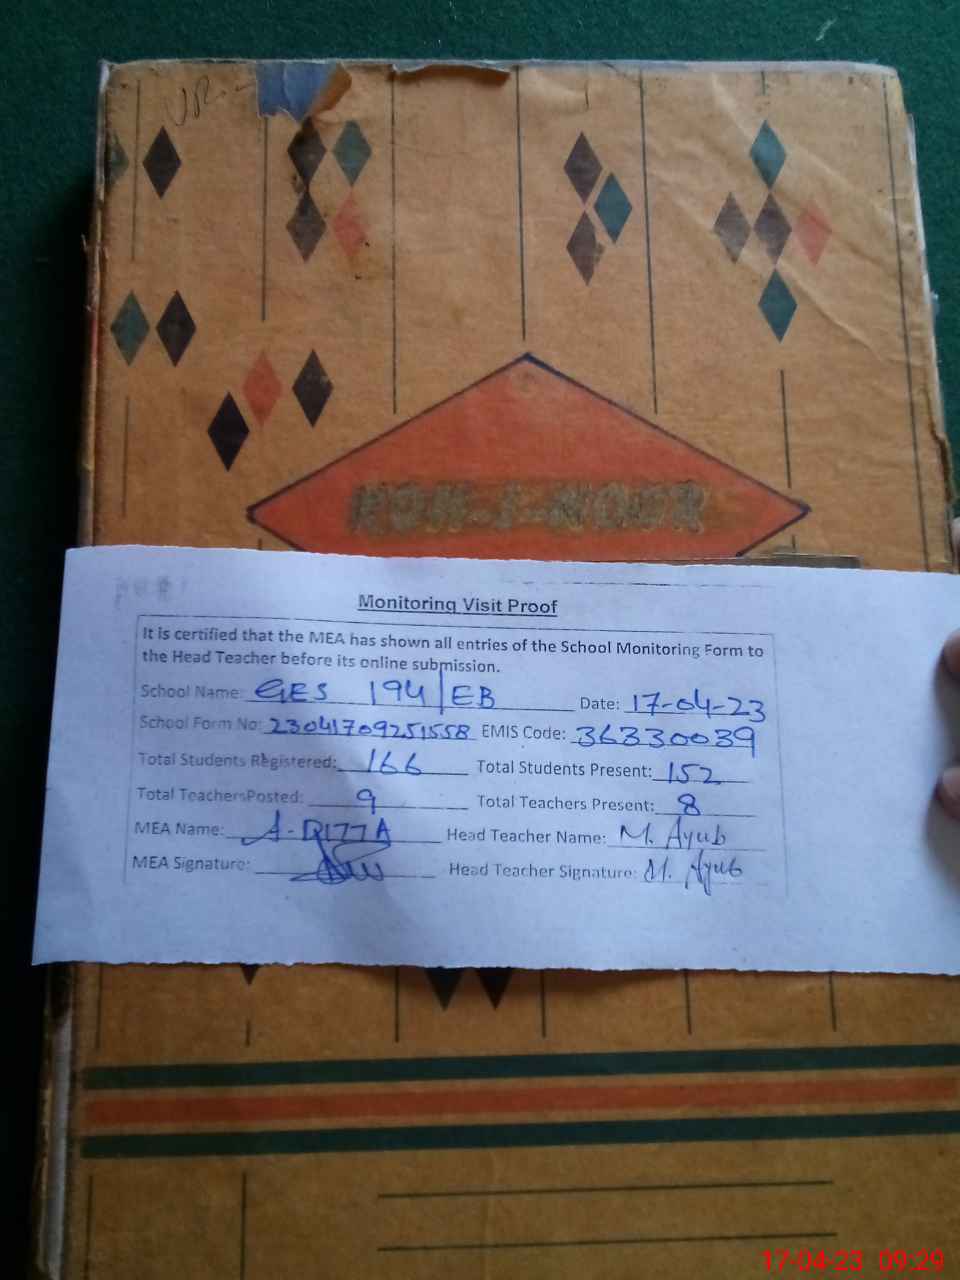 KOH-I-NOOR
Monitoring Visit Proof
It is certified that the MEA has shown all entries of the School Monitoring Form to
the Head Teacher before its online submission.
School Name: GES 194/EB Date: 17-04-23
School Form No: 23041709251558 EMIS Code: 36330039
Total Students Registered: 166 Total Students Present: 152
Total TeachersPosted: 9 Total Teachers Present: 8
MEA Name: Head Teacher Name: M. Ayub
MEA Signature: Head Teacher Signature: M. Ayub
17-04-23 09:29